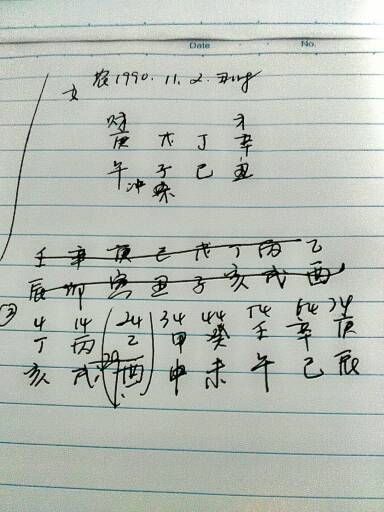 Date No.
女 农1990.11.2.
财 才
庚 戊 丁 辛
午 子 巳 丑
冲
壬 辛 庚 己 戊 丁 丙 乙
辰 卯 寅 丑 子 亥 戌 酉
③ 4 14 24 34 44 54 64 74
丁 丙 乙 甲 癸 壬 辛 庚
29
亥 戌 酉 申 未 午 巳 辰